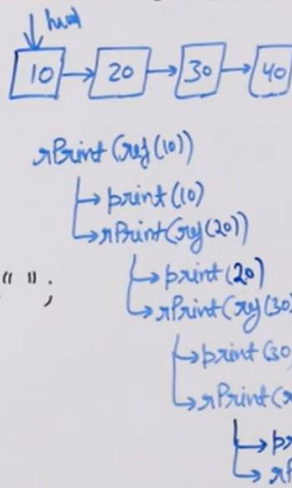 head
10 → 20 → 30 → 40
rPrint(ref(10))
→ print(10)
→ rPrint(ref(20))
" ";
→ print(20)
→ rPrint(ref(30)
→ print(30
→ rPrint(r
→ pr
→ rP